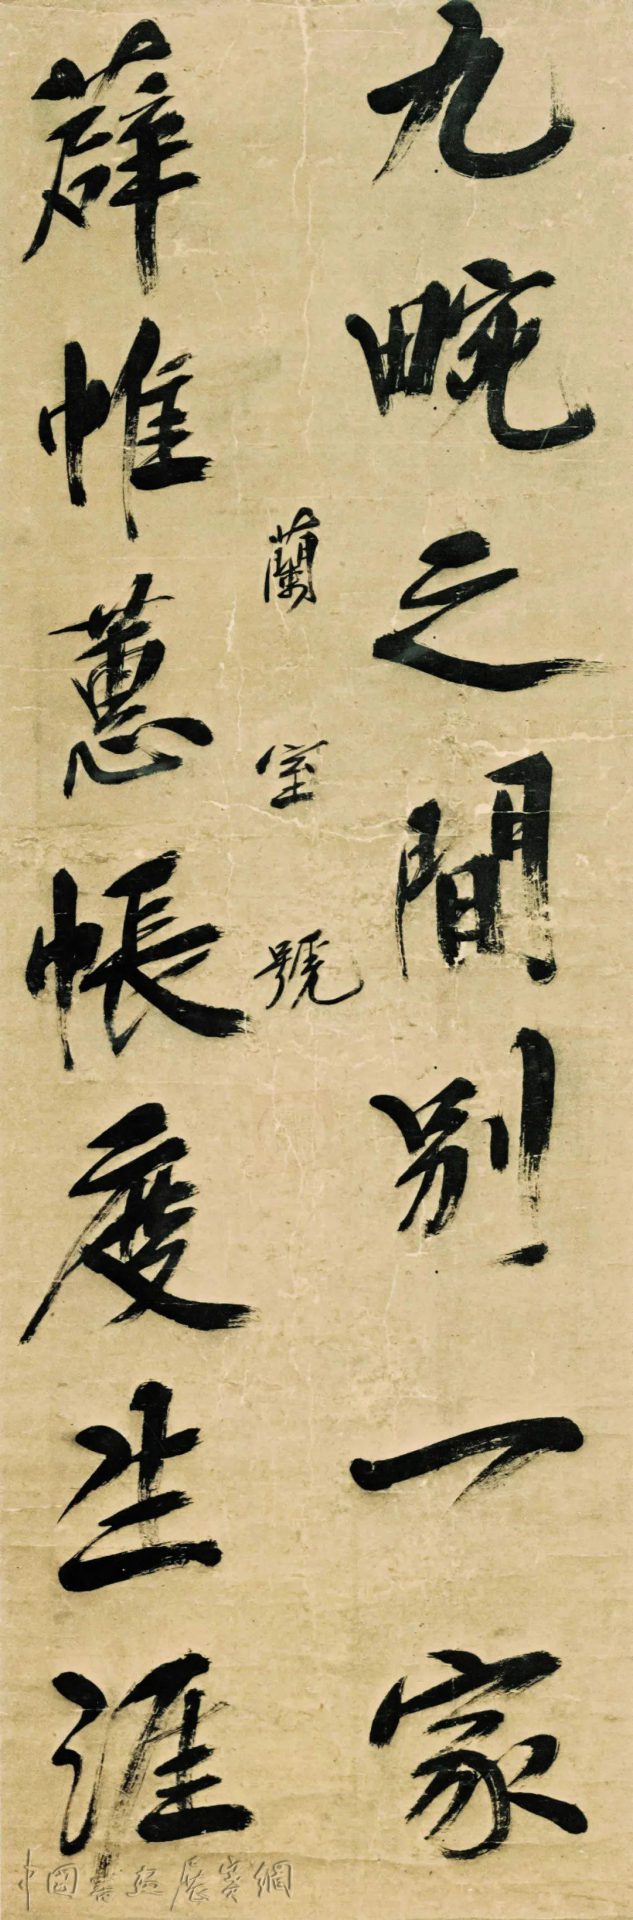 九畹之間別一家
蘭室號
薜帷蕙帳度生涯
中國書法展賽網